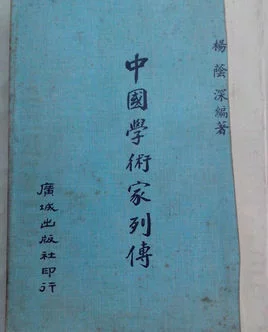 楊蔭深編著
中國學術家列傳
廣城出版社印行